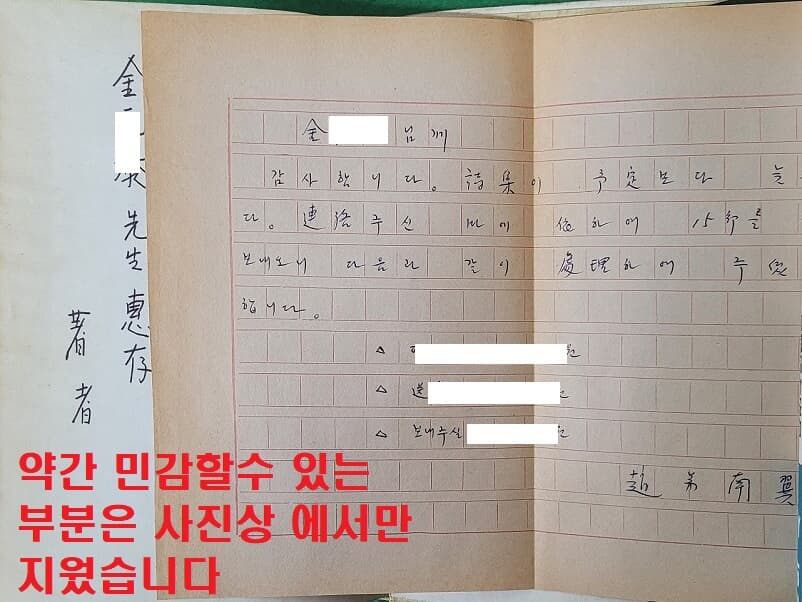 金 先生 惠存
著者
金 님께
감사합니다. 詩集이 予定보다
다. 連洛주신 바에 依하여 15部를
보내오니 다음과 같이 處理하여 주
합니다.
△ 원
△ 送 원
△ 보내주실 원
趙 南翼
약간 민감할수 있는
부분은 사진상 에서만
지웠습니다